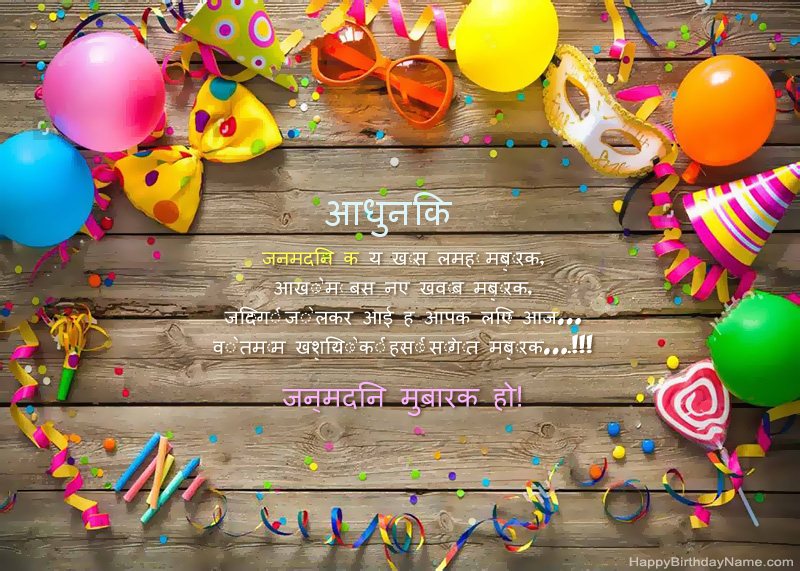 आधुनकि
जनमदनि क य खास लमह मबारक,
आखोम बस नए खवाब मबारक,
जदिगी जो लेकर आई ह आपक लएि आज...
वो तमाम खशयिो की हसी सागात मबारक...!!!
जन्मदनि मुबारक हो!
HappyBirthdayName.com